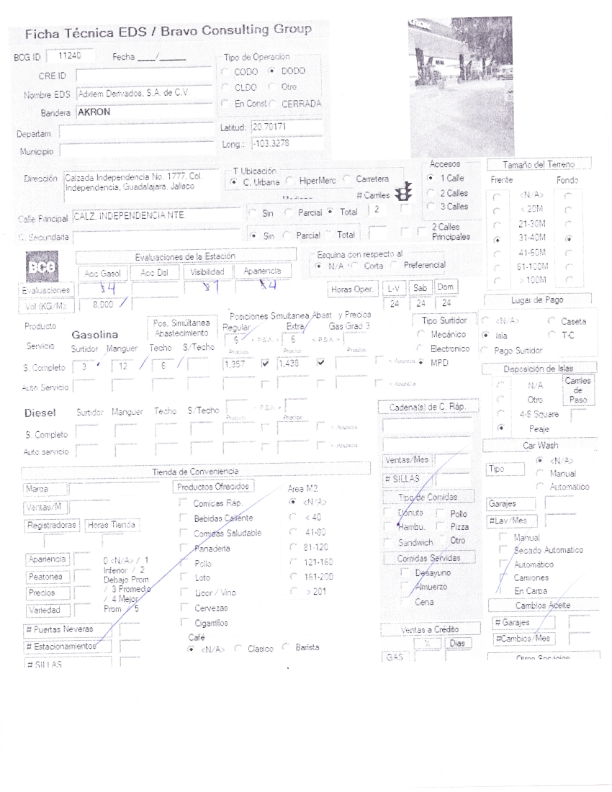 Ficha Técnica EDS / Bravo Consulting Group
BCG ID 11240 Fecha ___/____
Tipo de Operación
CODO DODO
CLDO Otro
En Const CERRADA
CRE ID
Nombre EDS Adxlem Derivados, S.A. de C.V.
Bandera AKRON
Departam.
Municipio
Latitud: 20.70171
Long.: -103.3278
Dirección Calzada Independencia No. 1777, Col.
Independencia, Guadalajara, Jalisco
T Ubicación
C. Urbana HiperMerc Carretera
# Carriles
Accesos
1 Calle
2 Calles
3 Calles
2 Calles
Principales
Calle Principal CALZ. INDEPENDENCIA NTE Sin Parcial Total 2
C. Secundaria Sin Parcial Total
Tamaño del Terreno
Frente Fondo
<N/A>
< 20M
21-30M
31-40M
41-60M
61-100M
> 100M
BCG
Evaluaciones de la Estación
Acc Gasol Acc Dsl Visibilidad Apariencia
Evaluaciones
Vol (KG/M) 8,000
Esquina con respecto al
N/A Corta Preferencial
Horas Oper. L-V Sab Dom
24 24 24
Lugar de Pago
<N/A> Caseta
Isla T-C
Pago Surtidor
Producto Gasolina
Servicio Surtidor Manguer Techo S./Techo
Pos. Simultanea
Abastecimiento
Posiciones Simultanea Abast y Precios
Regular Extra Gas Grad 3
6 6
Precios Precios Precios
S. Completo 3 12 6 1,357 1,438
Auto Servicio
Tipo Surtidor
Mecánico
Electronico
MPD
Disposición de Islas
N/A
Otro
4-8 Square
Peaje
Carriles
de
Paso
Diesel Surtidor Manguer Techo S./Techo
S. Completo
Auto servicio
Cadena(s) de C. Ráp.
Ventas/Mes
# SILLAS
Tipo de Comidas
Donuts Pollo
Hambu. Pizza
Sandwich Otro
Comidas Servidas
Desayuno
Almuerzo
Cena
Ventas a Crédito
% Dias
GAS
Car Wash
Tipo
<N/A>
Manual
Automatico
Garajes
#Lav/Mes
Manual
Secado Automatico
Automático
Camiones
En Carpa
Cambios Aceite
# Garajes
#Cambios/Mes
Otros Servicios
Tienda de Conveniencia
Marca
Ventas/M
Registradoras Horas Tienda
Apariencia
Peatonea
Precios
Variedad
0 <N/A> / 1
Inferior / 2
Debajo Prom
/ 3 Promedio
/ 4 Mejor
Prom / 5
# Puertas Neveras
# Estacionamientos
# SILLAS
Productos Ofrecidos
Comidas Ráp.
Bebidas Caliente
Comidas Saludable
Panaderia
Pollo
Loto
Licor / Vino
Cervezas
Cigarrillos
Café
<N/A> Clasico Barista
Area M2
<N/A>
< 40
41-80
81-120
121-160
161-200
> 201